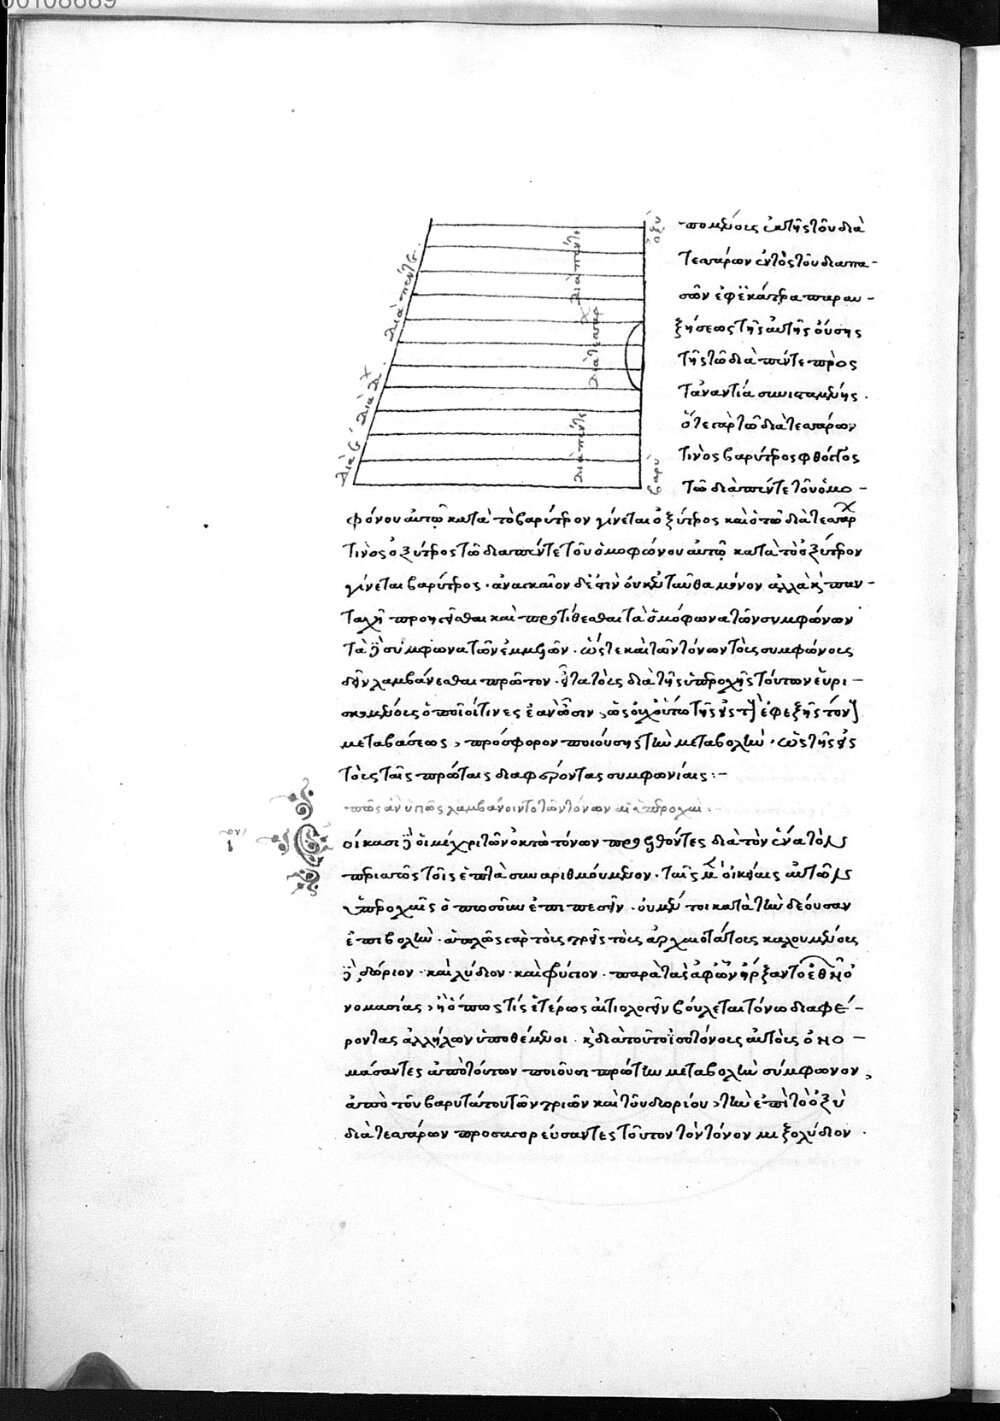 00108689
ὀξύ
διὰ πέντε
διὰ πέντε
διὰ τεσσάρ
διὰ δ
διὰ πέντε
διὰ ε
βαρύ
πομένοις ἐκ τῆς τοῦ διὰ
τεσσάρων ἐντὸς τοῦ διαπα-
σῶν ἐφ' ἑκάτερα παραυ-
ξήσεως τῆς αὐτῆς οὔσης
τῆς τῶ διὰ πέντε πρὸς
τἀναντία συνισταμένης.
ὅτε γὰρ τῶ διὰ τεσσάρων
τινὸς βαρύτερος φθόγγος
τῶ διὰ πέντε τοῦ ὁμο-
φώνου αὐτῶ κατὰ τὸ βαρύτερον γίνεται ὀξύτερος καὶ ὁ τῶ διὰ τεσσάρ
τινὸς ὀξύτερος τῶ διὰ πέντε τοῦ ὁμοφώνου αὐτῶ κατὰ τὸ ὀξύτερον
γίνεται βαρύτερος. ἀναγκαῖον δέ ἐστιν οὐκ ἐνταῦθα μόνον ἀλλὰ καὶ παν-
ταχῆ προηγεῖσθαι καὶ προτίθεσθαι τὰ ὁμόφωνα τῶν συμφώνων
τὰ δὲ σύμφωνα τῶν ἐμμελῶν. ὥστε καὶ τῶν τόνων τοὺς συμφώνους
δεῖν λαμβάνεσθαι πρῶτον. εἶτα τοὺς διὰ τῆς ὑπεροχῆς τούτων εὑρι-
σκομένους ὁποῖοί τινες ἐὰν ὦσιν, ὡς οὐχ οὕτω τῆς εἰς τ ἐφεξῆς τόν
μεταβάσεως, πρόσφορον ποιούσης τὴν μεταβολὴν. ὡς τῆς εἰς
τοὺς ταῖς πρώταις διαφέροντας συμφωνίαις:-
πῶς ἂν ὑγιῶς λαμβάνοιντο τῶν τόνων αἱ ὑπεροχαὶ:-
ἐοίκασι δὲ οἱ μέχρι τῶν ὀκτὼ τόνων προελθόντες διὰ τὸν ἕνα τὸν
περιττῶς τοῖς ἑπτὰ συναριθμούμενον. ταῖς μὲν οἰκείαις αὐτῶν
ὑπεροχαῖς ὁπωσοῦν ἐπιπεσεῖν. οὐ μέν τοι κατὰ τὴν δέουσαν
ἐπιβολὴν. ἁπλῶς γὰρ τοὺς τρεῖς τοὺς ἀρχαιοτάτους καλουμένους
δὲ δώριον. καὶ λύδιον. καὶ φρύγιον. παρὰ τὰς ἀφ' ὧν ἤρξαντο ἐθνῶ ὀ
νομασίας, ἢ ὅπως τίς ἑτέρως αἰτιολογεῖν βούλεται τόνω διαφέ-
ροντας ἀλλήλων ὑποθέμενοι. καὶ διὰ τοῦτο ἰσοτόνους αὐτοὺς ὀνο-
μάσαντες ἀπὸ τούτων ποιοῦσι πρώτην μεταβολὴν σύμφωνον,
ἀπὸ τοῦ βαρυτάτου τῶν τριῶν καὶ τοῦ δωρίου, τὴν ἐπὶ τὸ ὀξὺ
διὰ τεσσάρων προσαγορεύσαντες τοῦτον τὸν τόνον μιξολύδιον.